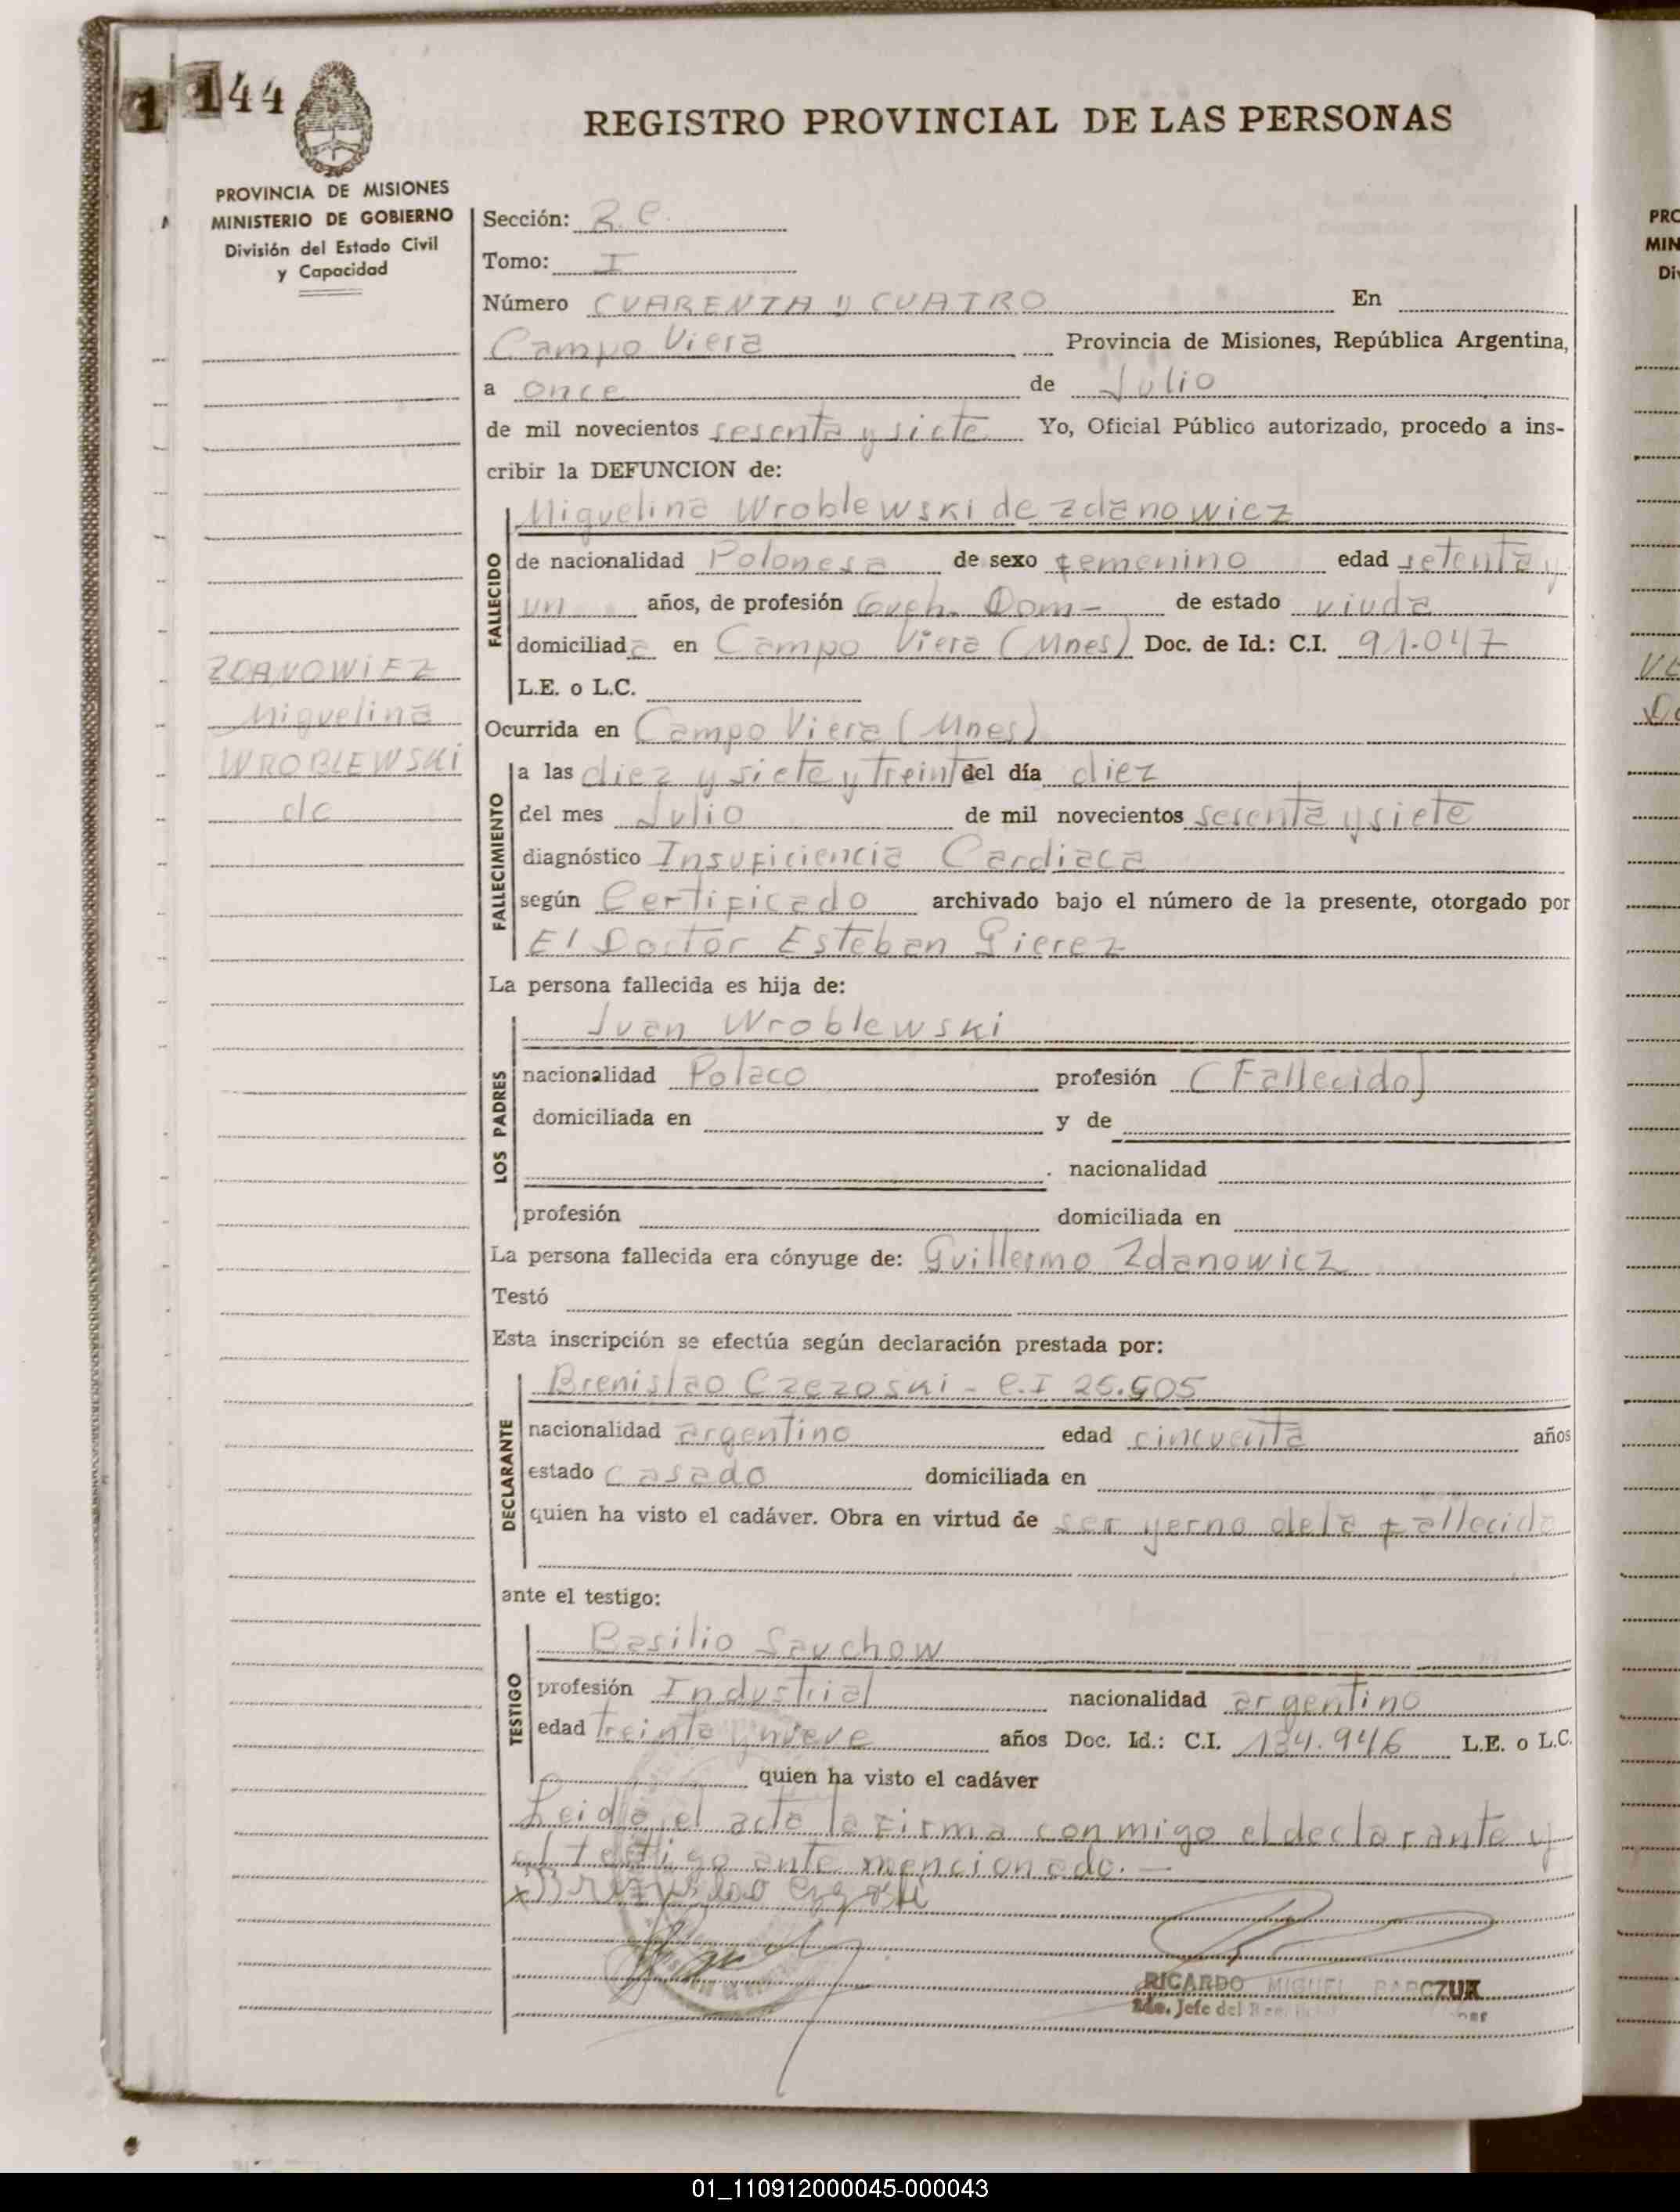 1 144
REGISTRO PROVINCIAL DE LAS PERSONAS
PROVINCIA DE MISIONES
MINISTERIO DE GOBIERNO
División del Estado Civil
y Capacidad
Sección: R.C.
Tomo: I
Número CUARENTA y CUATRO En
Campo Viera Provincia de Misiones, República Argentina,
a once de Julio
de mil novecientos sesenta y siete Yo, Oficial Público autorizado, procedo a ins-
cribir la DEFUNCION de:
FALLECIDO
Miguelina Wroblewski de Zdanowicz
de nacionalidad Polonesa de sexo femenino edad setenta y
un años, de profesión Dom- de estado viuda
domiciliada en Campo Viera (Mnes) Doc. de Id.: C.I. 91.047
L.E. o L.C.
ZDANOWIEZ
Miguelina
WROBLEWSKI
de
Ocurrida en Campo Viera (Mnes)
FALLECIMIENTO
a las diez y siete y treint del día diez
del mes Julio de mil novecientos sesenta y siete
diagnóstico Insuficiencia Cardiaca
según Certificado archivado bajo el número de la presente, otorgado por
El Doctor Esteban Pierez
La persona fallecida es hija de:
LOS PADRES
Juan Wroblewski
nacionalidad Polaco profesión (Fallecido)
domiciliada en y de
nacionalidad
profesión domiciliada en
La persona fallecida era cónyuge de: Guillermo Zdanowicz
Testó
Esta inscripción se efectúa según declaración prestada por:
DECLARANTE
Brenislao Czezoski - C.I 26.605
nacionalidad argentino edad cincuenta años
estado casado domiciliada en
quien ha visto el cadáver. Obra en virtud de ser yerno de la fallecida
ante el testigo:
TESTIGO
Basilio Sauchow
profesión Industrial nacionalidad argentino
edad treinta y nueve años Doc. Id.: C.I. 134.946 L.E. o L.C.
quien ha visto el cadáver
Leida el acta la firma conmigo el declarante y
el testigo ante mencionado. -
RICARDO MIGUEL PARCZUK
2do. Jefe del
PRO
MIN
Di
01_110912000045-000043